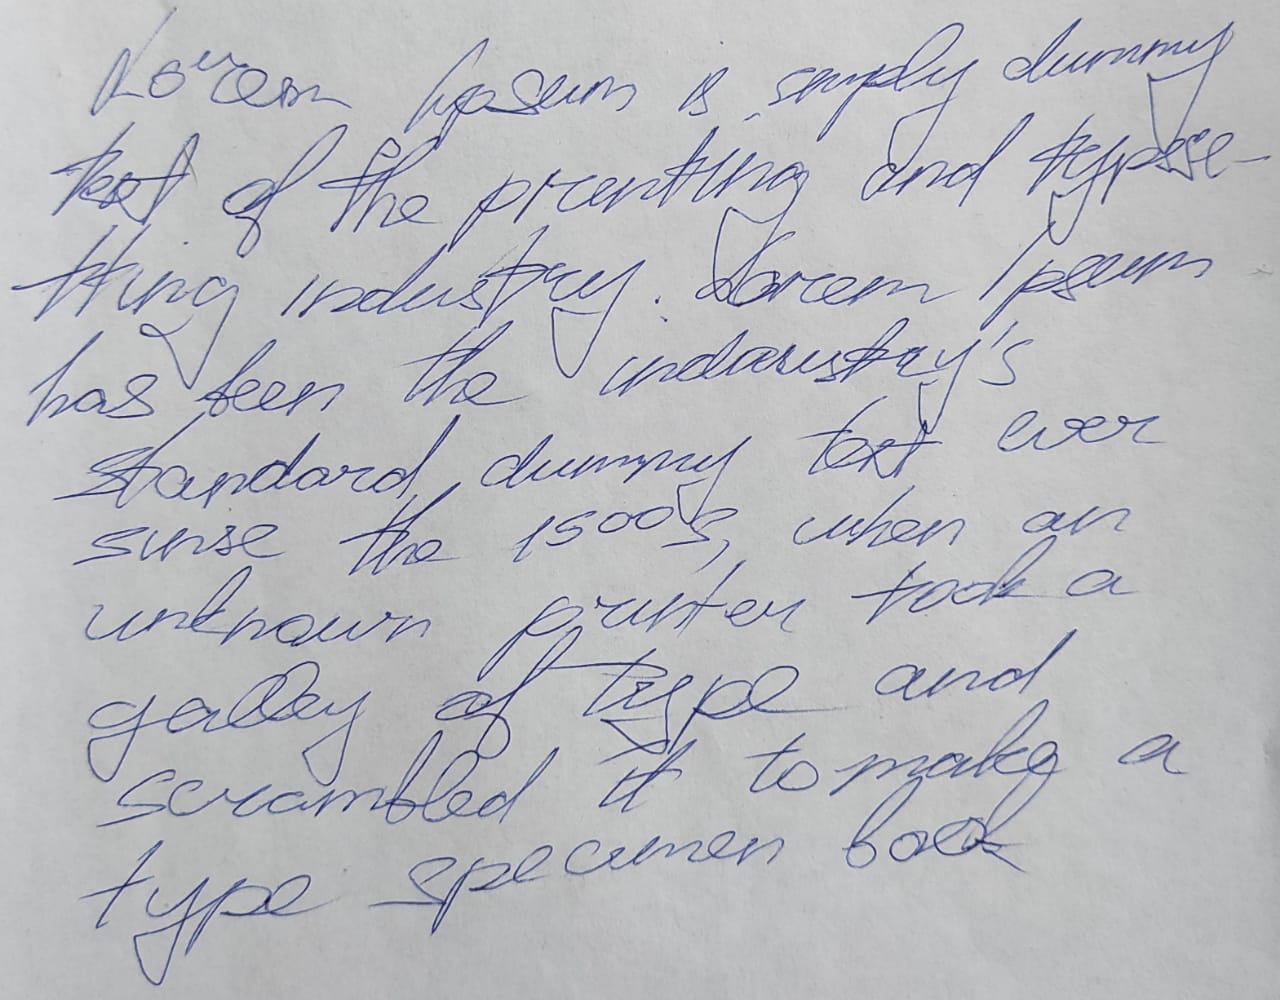 Lorem Ipsum is simply dummy
text of the printing and typese-
tting industry. Lorem Ipsum
has been the indusustry's
standard dummy text ever
sinse the 1500s, when an
unknown printer took a
galley of type and
scrambled it to make a
type specimen book